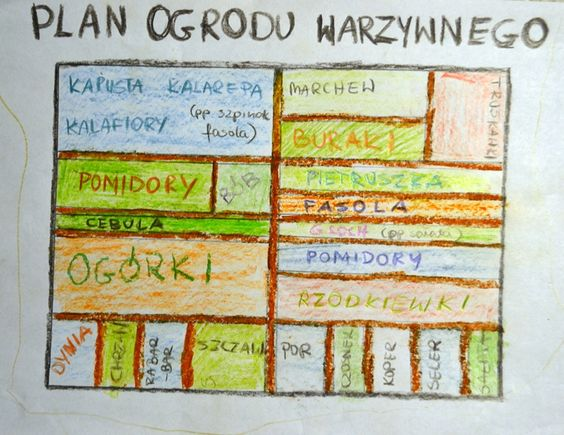 PLAN OGRODU WARZYWNEGO
KAPUSTA KALAREPA
KALAFIORY (pp. szpinak
fasola)
POMIDORY
BÓB
CEBULA
OGÓRKI
DYNIA
CHRZAN
RABAR
-BAR
SZCZAW
MARCHEW
TRUSKAWKI
BURAKI
PIETRUSZKA
FASOLA
GROCH (pp. sałata)
POMIDORY
RZODKIEWKI
POR
KOPER
SELER